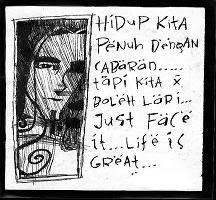 HiDUP KiTA
PéNUH DéNGAN
CADARAN.....
TAPi KiTA X
BOLéH LARi...
JUST FACé
iT...Lifé iS
GRéAT...